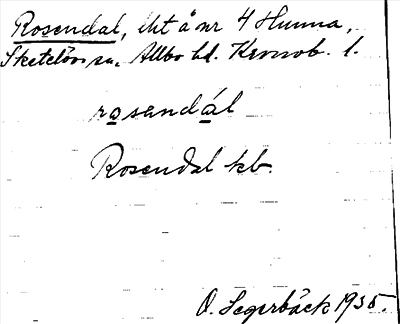 Rosendal, lht å nr 4 Hunna,
Skatelövs sn, Allbo hd. Kronob. l.
rosandál
Rosendal kb.
O. Segerbäck 1935.